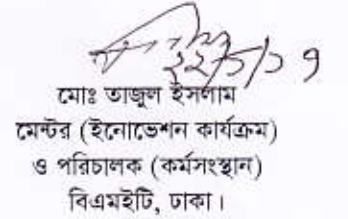 ২২/১/১৭
মোঃ তাজুল ইসলাম
মেন্টর (ইনোভেশন কার্যক্রম)
ও পরিচালক (কর্মসংস্থান)
বিএমইটি, ঢাকা।